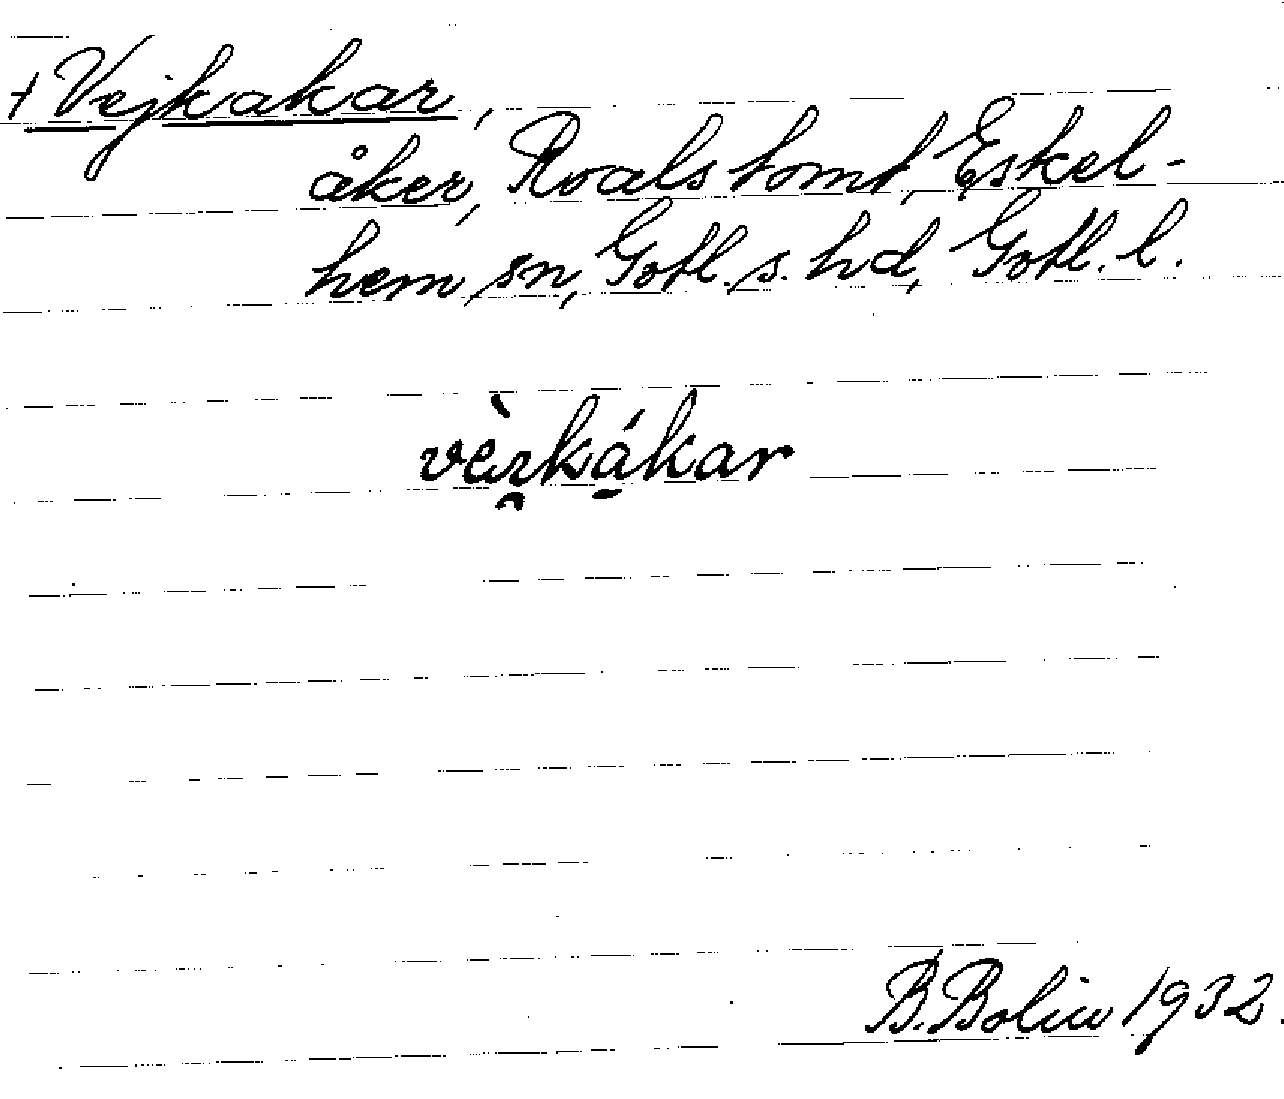 + Vejkakar,
åker, Roals tomt, Eskel-
hem sn, Gotl. s. hd, Gotl. l.
vèɪ̯kákar
B. Bolin 1932.